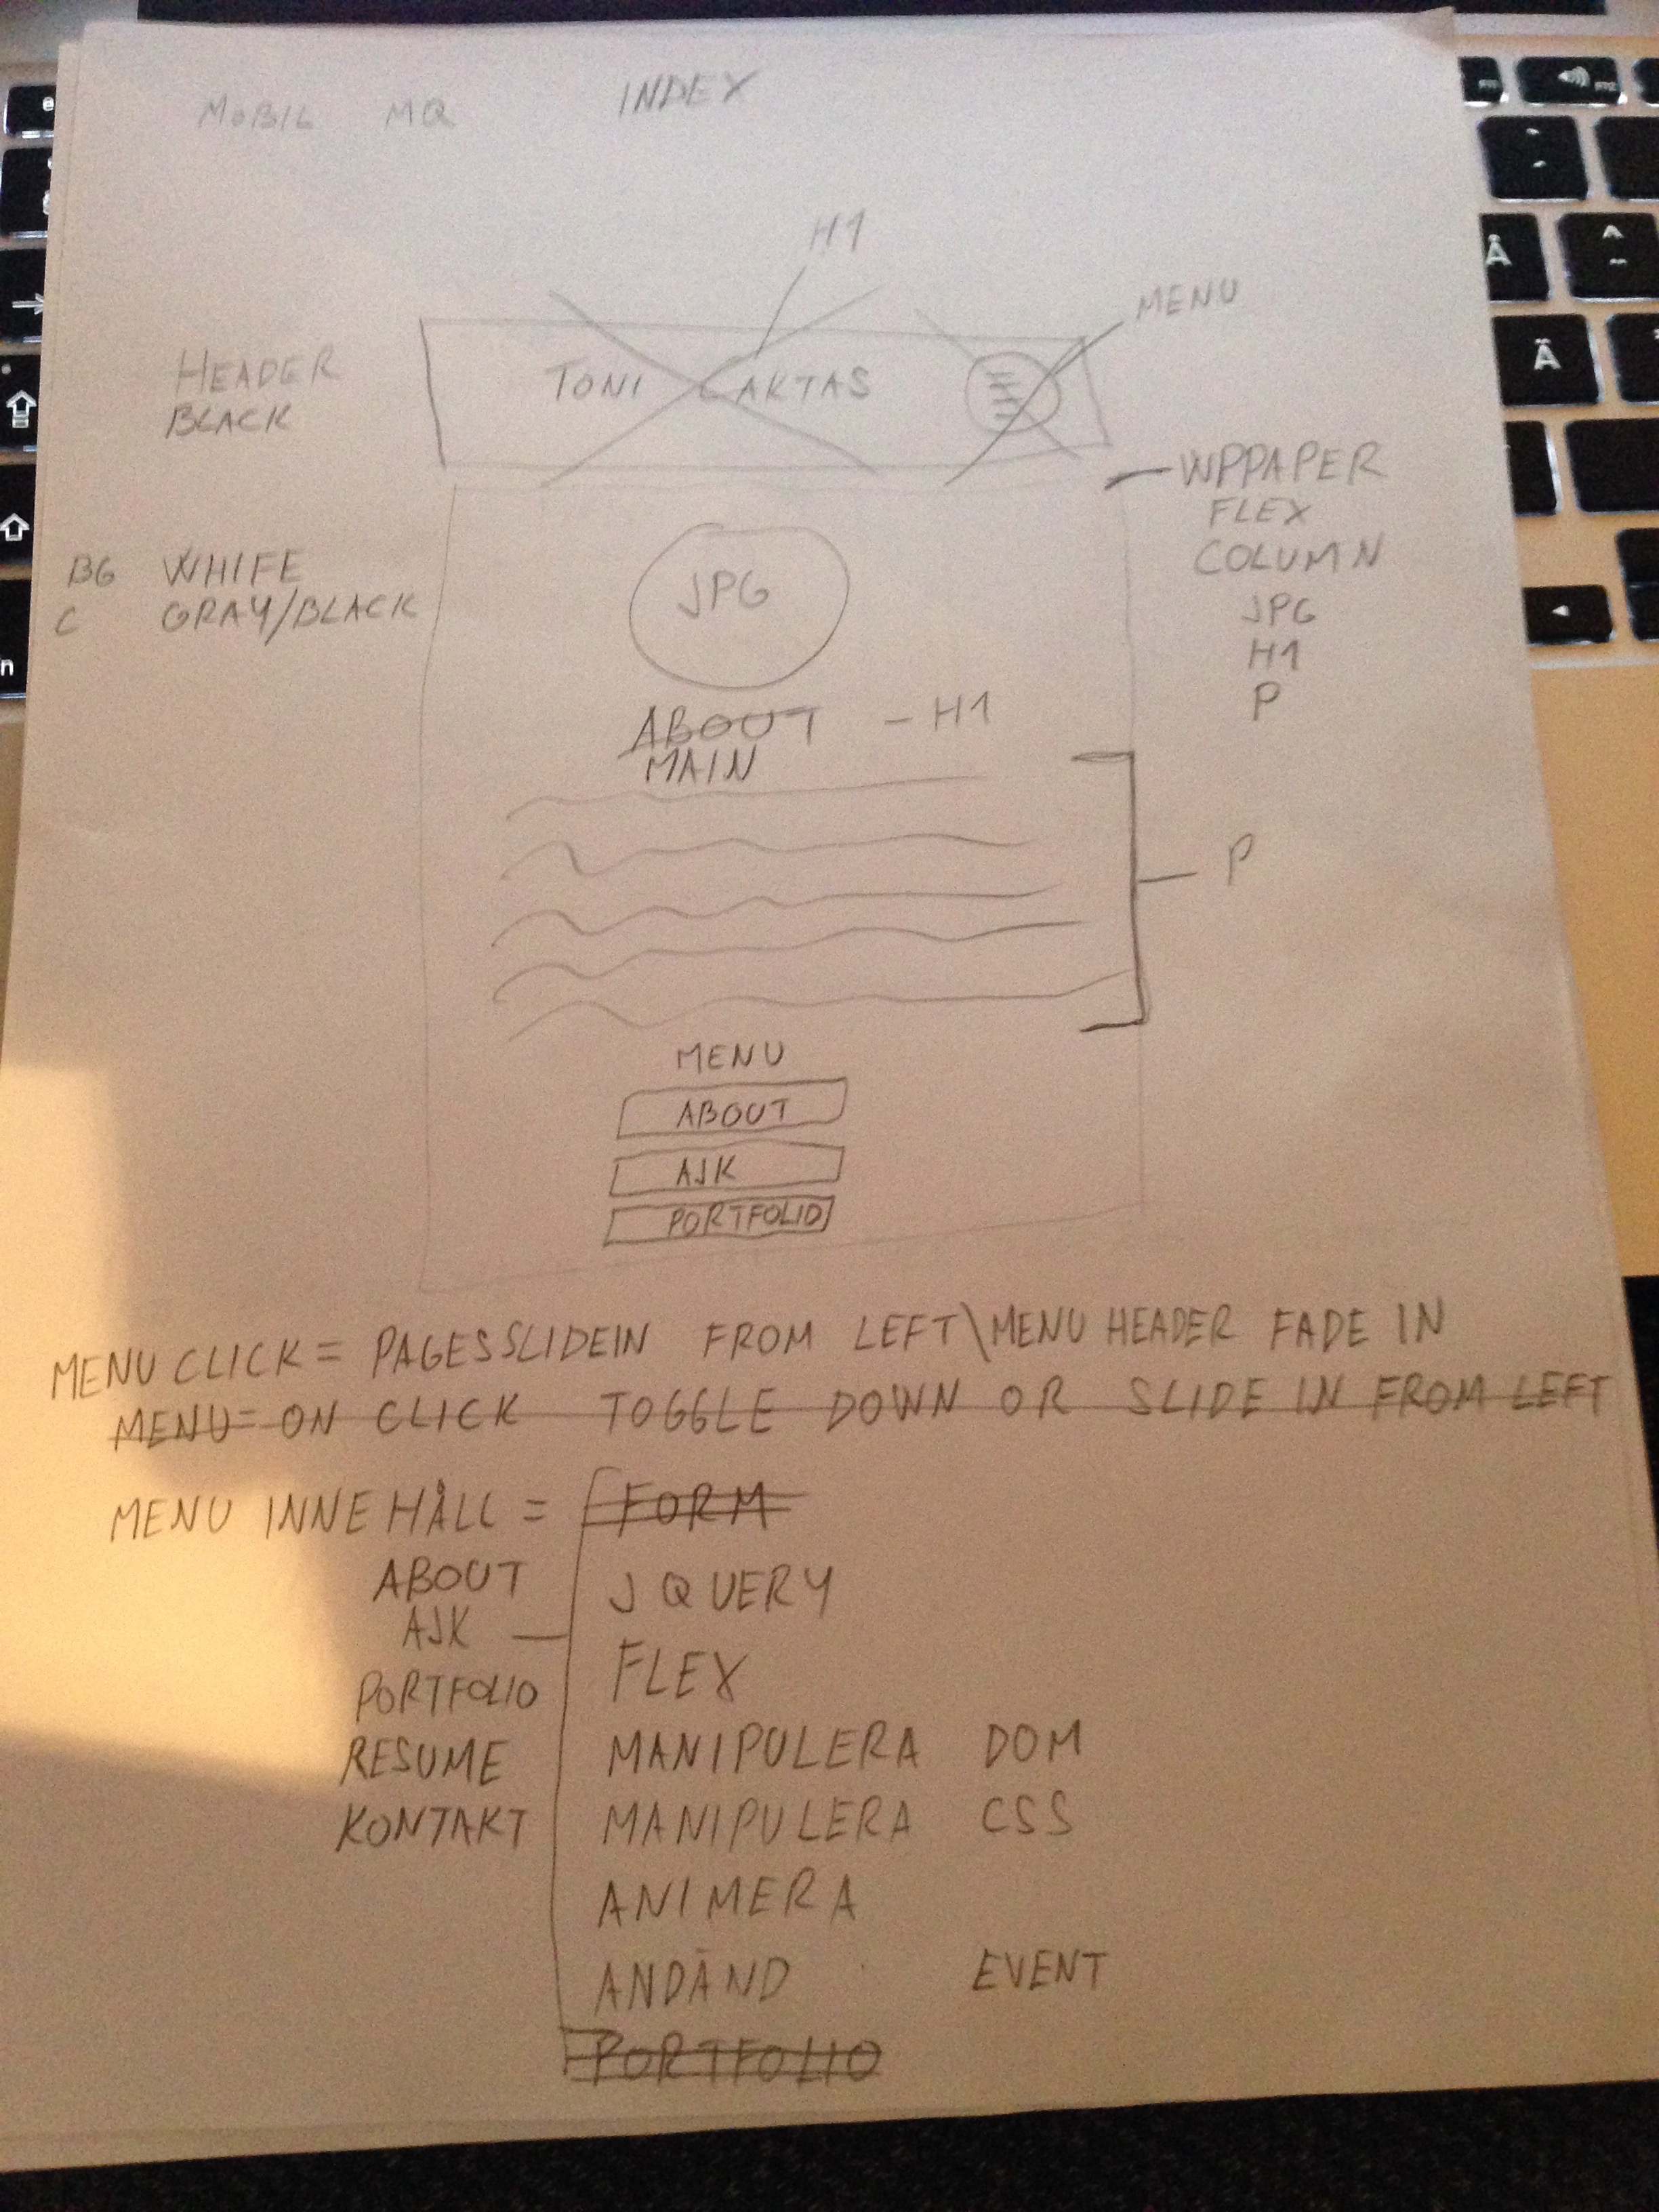 MOBIL MQ INDEX
H1
MENU
HEADER
BLACK
TONI CAKTAS
WPPAPER
FLEX
COLUMN
JPG
H1
P
BG WHIFE
C GRAY/BLACK
JPG
ABOUT - H1
MAIN
P
MENU
ABOUT
AJK
PORTFOLIO
MENU CLICK = PAGESSLIDEIN FROM LEFT\MENU HEADER FADE IN
MENU= ON CLICK TOGGLE DOWN OR SLIDE IN FROM LEFT
MENU INNEHÅLL = FORM
ABOUT
AJK
PORTFOLIO
RESUME
KONTAKT
JQUERY
FLEX
MANIPULERA DOM
MANIPULERA CSS
ANIMERA
ANDÄND EVENT
PORTFOLIO